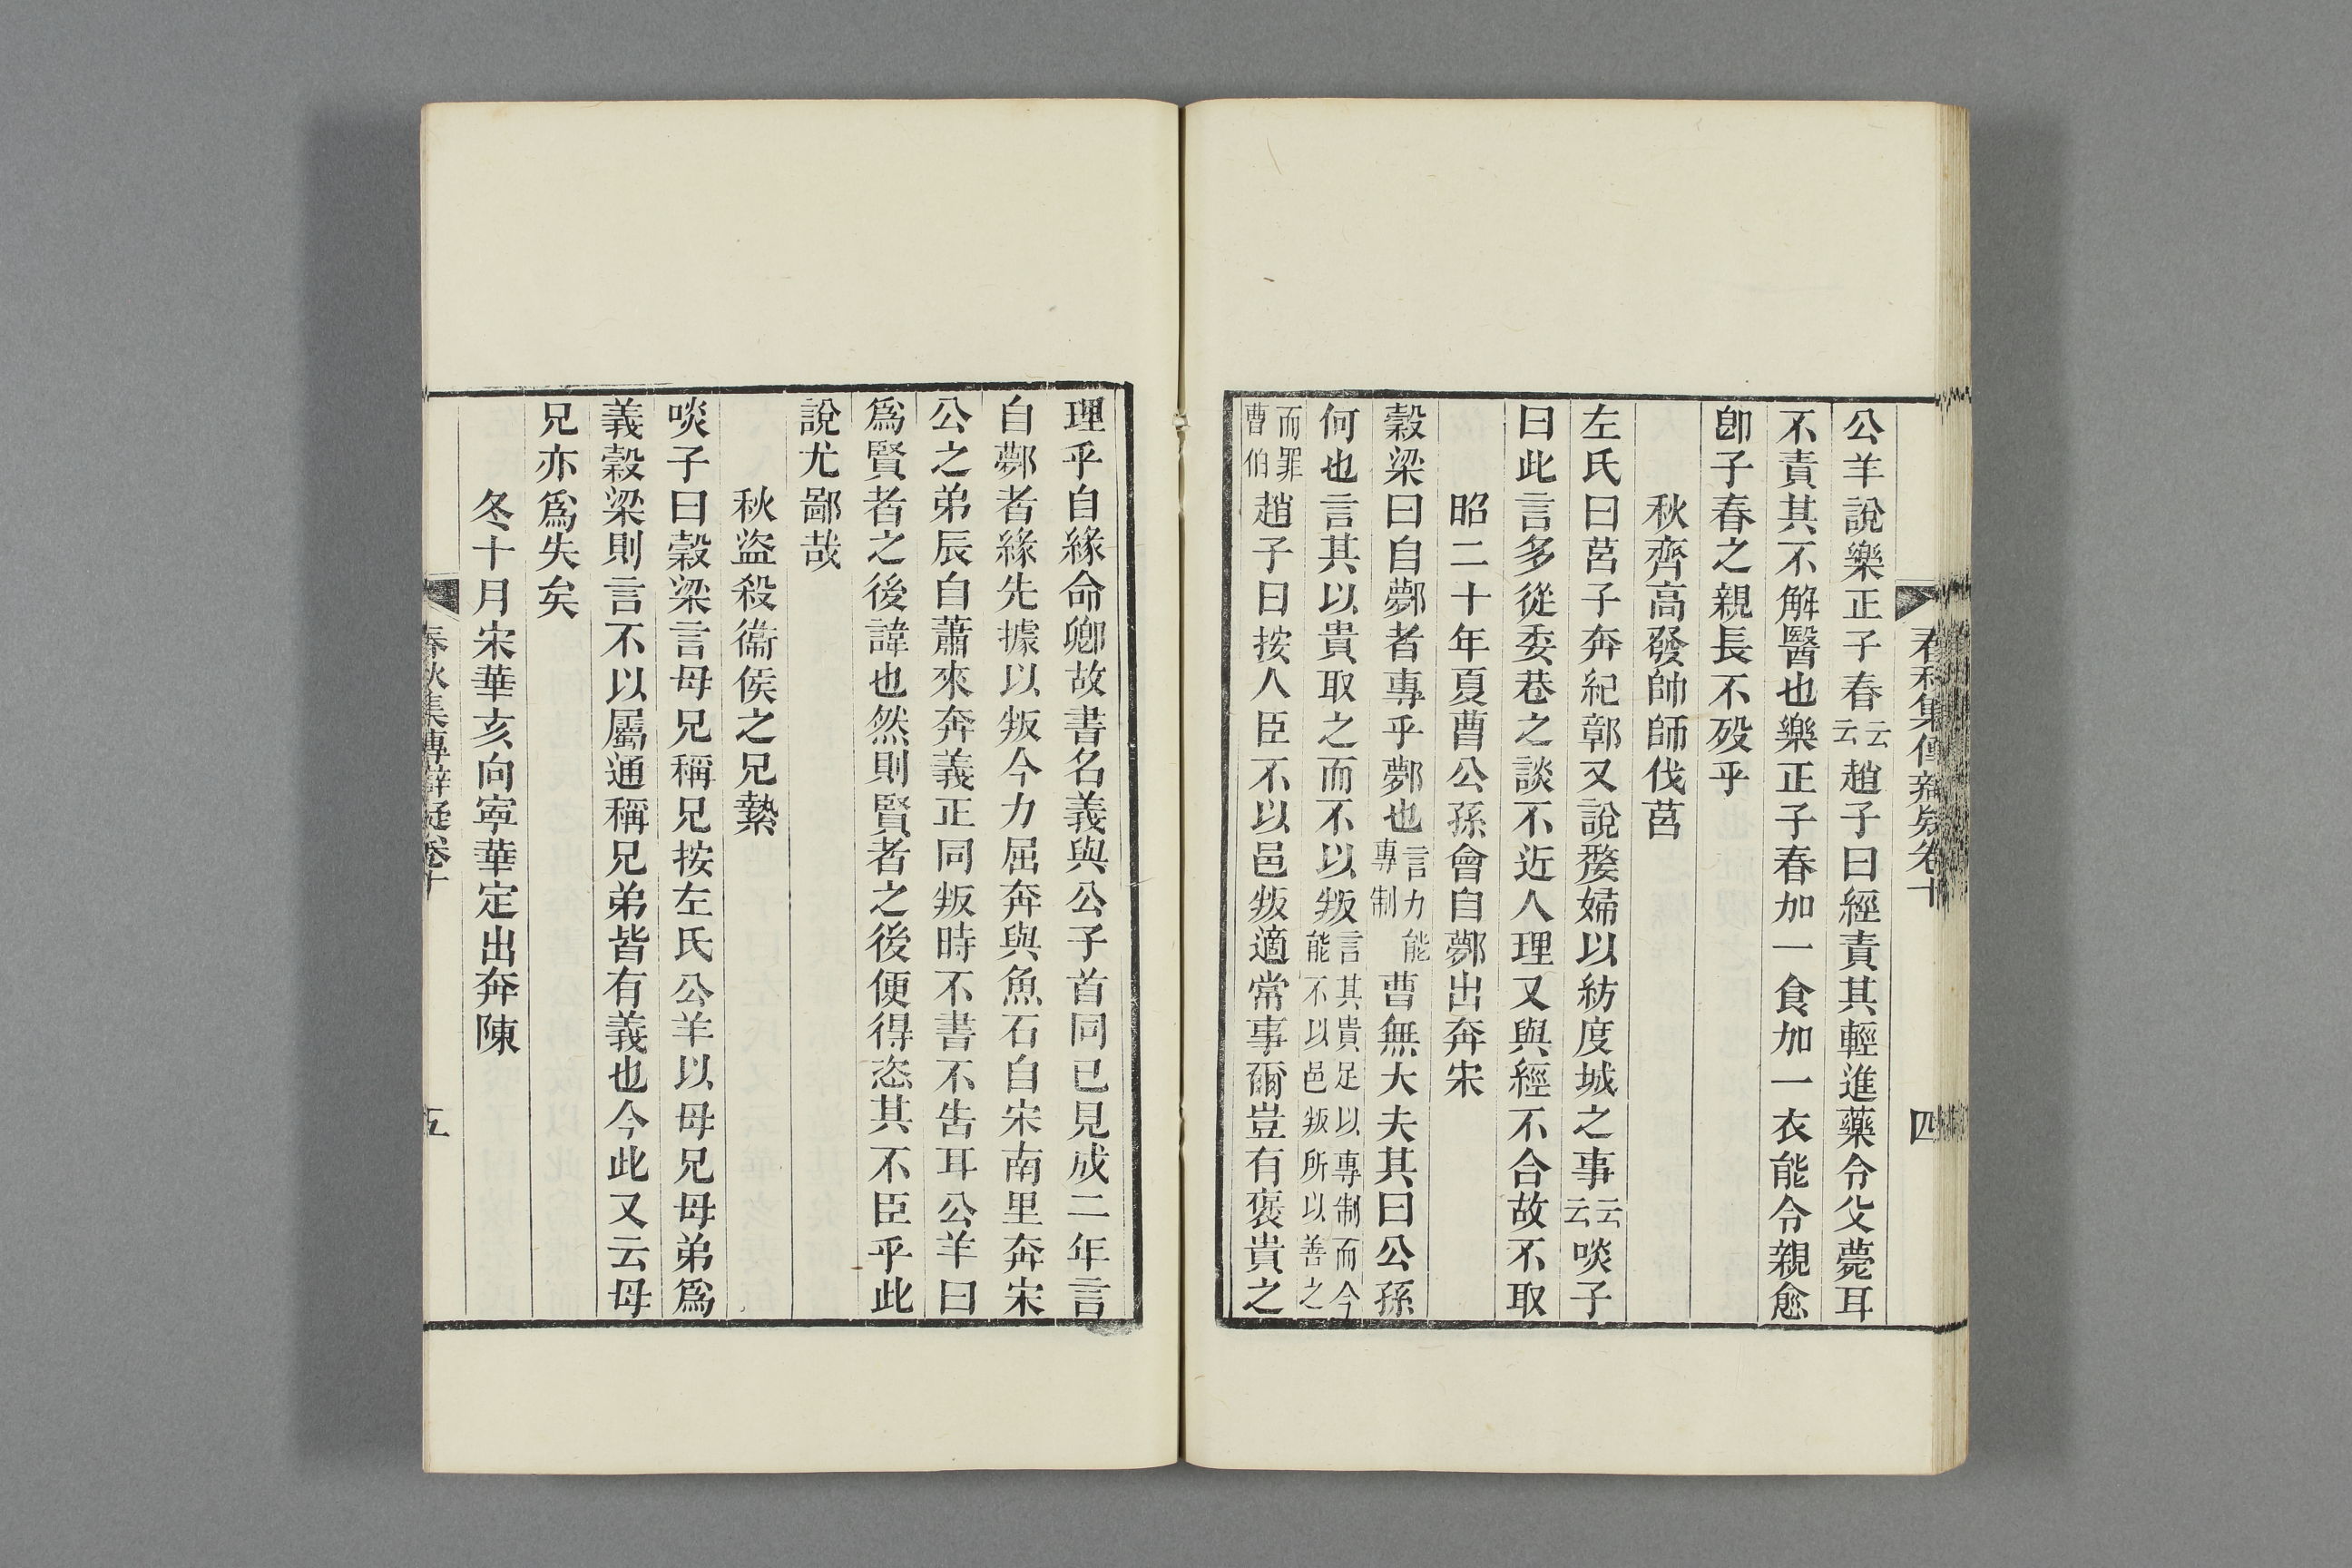 春秋集傳辯疑卷十 四
公羊說樂正子春云云趙子曰經責其輕進藥令父薨耳
不責其不解醫也樂正子春加一食加一衣能令親愈
卽子春之親長不歿乎
秋齊高發帥師伐莒
左氏曰莒子奔紀鄣又說嫠婦以紡度城之事云云啖子
曰此言多從委巷之談不近人理又與經不合故不取
昭二十年夏曹公孫會自鄸出奔宋
穀梁曰自鄸者專乎鄸也言力能專制曹無大夫其曰公孫
何也言其以貴取之而不以叛言其貴足以專制而今能不以邑叛所以善之
而罪曹伯趙子曰按人臣不以邑叛適常事爾豈有褒貴之
理乎自緣命卿故書名義與公子首同已見成二年言
自鄸者緣先據以叛今力屈奔與魚石自宋南里奔宋
公之弟辰自蕭來奔義正同叛時不書不告耳公羊曰
爲賢者之後諱也然則賢者之後便得恣其不臣乎此
說尤鄙哉
秋盜殺衞侯之兄縶
啖子曰穀梁言母兄稱兄按左氏公羊以母兄母弟爲
義穀梁則言不以屬通稱兄弟皆有義也今此又云母
兄亦爲失矣
冬十月宋華亥向寕華定出奔陳
春秋集傳辯疑卷十 五